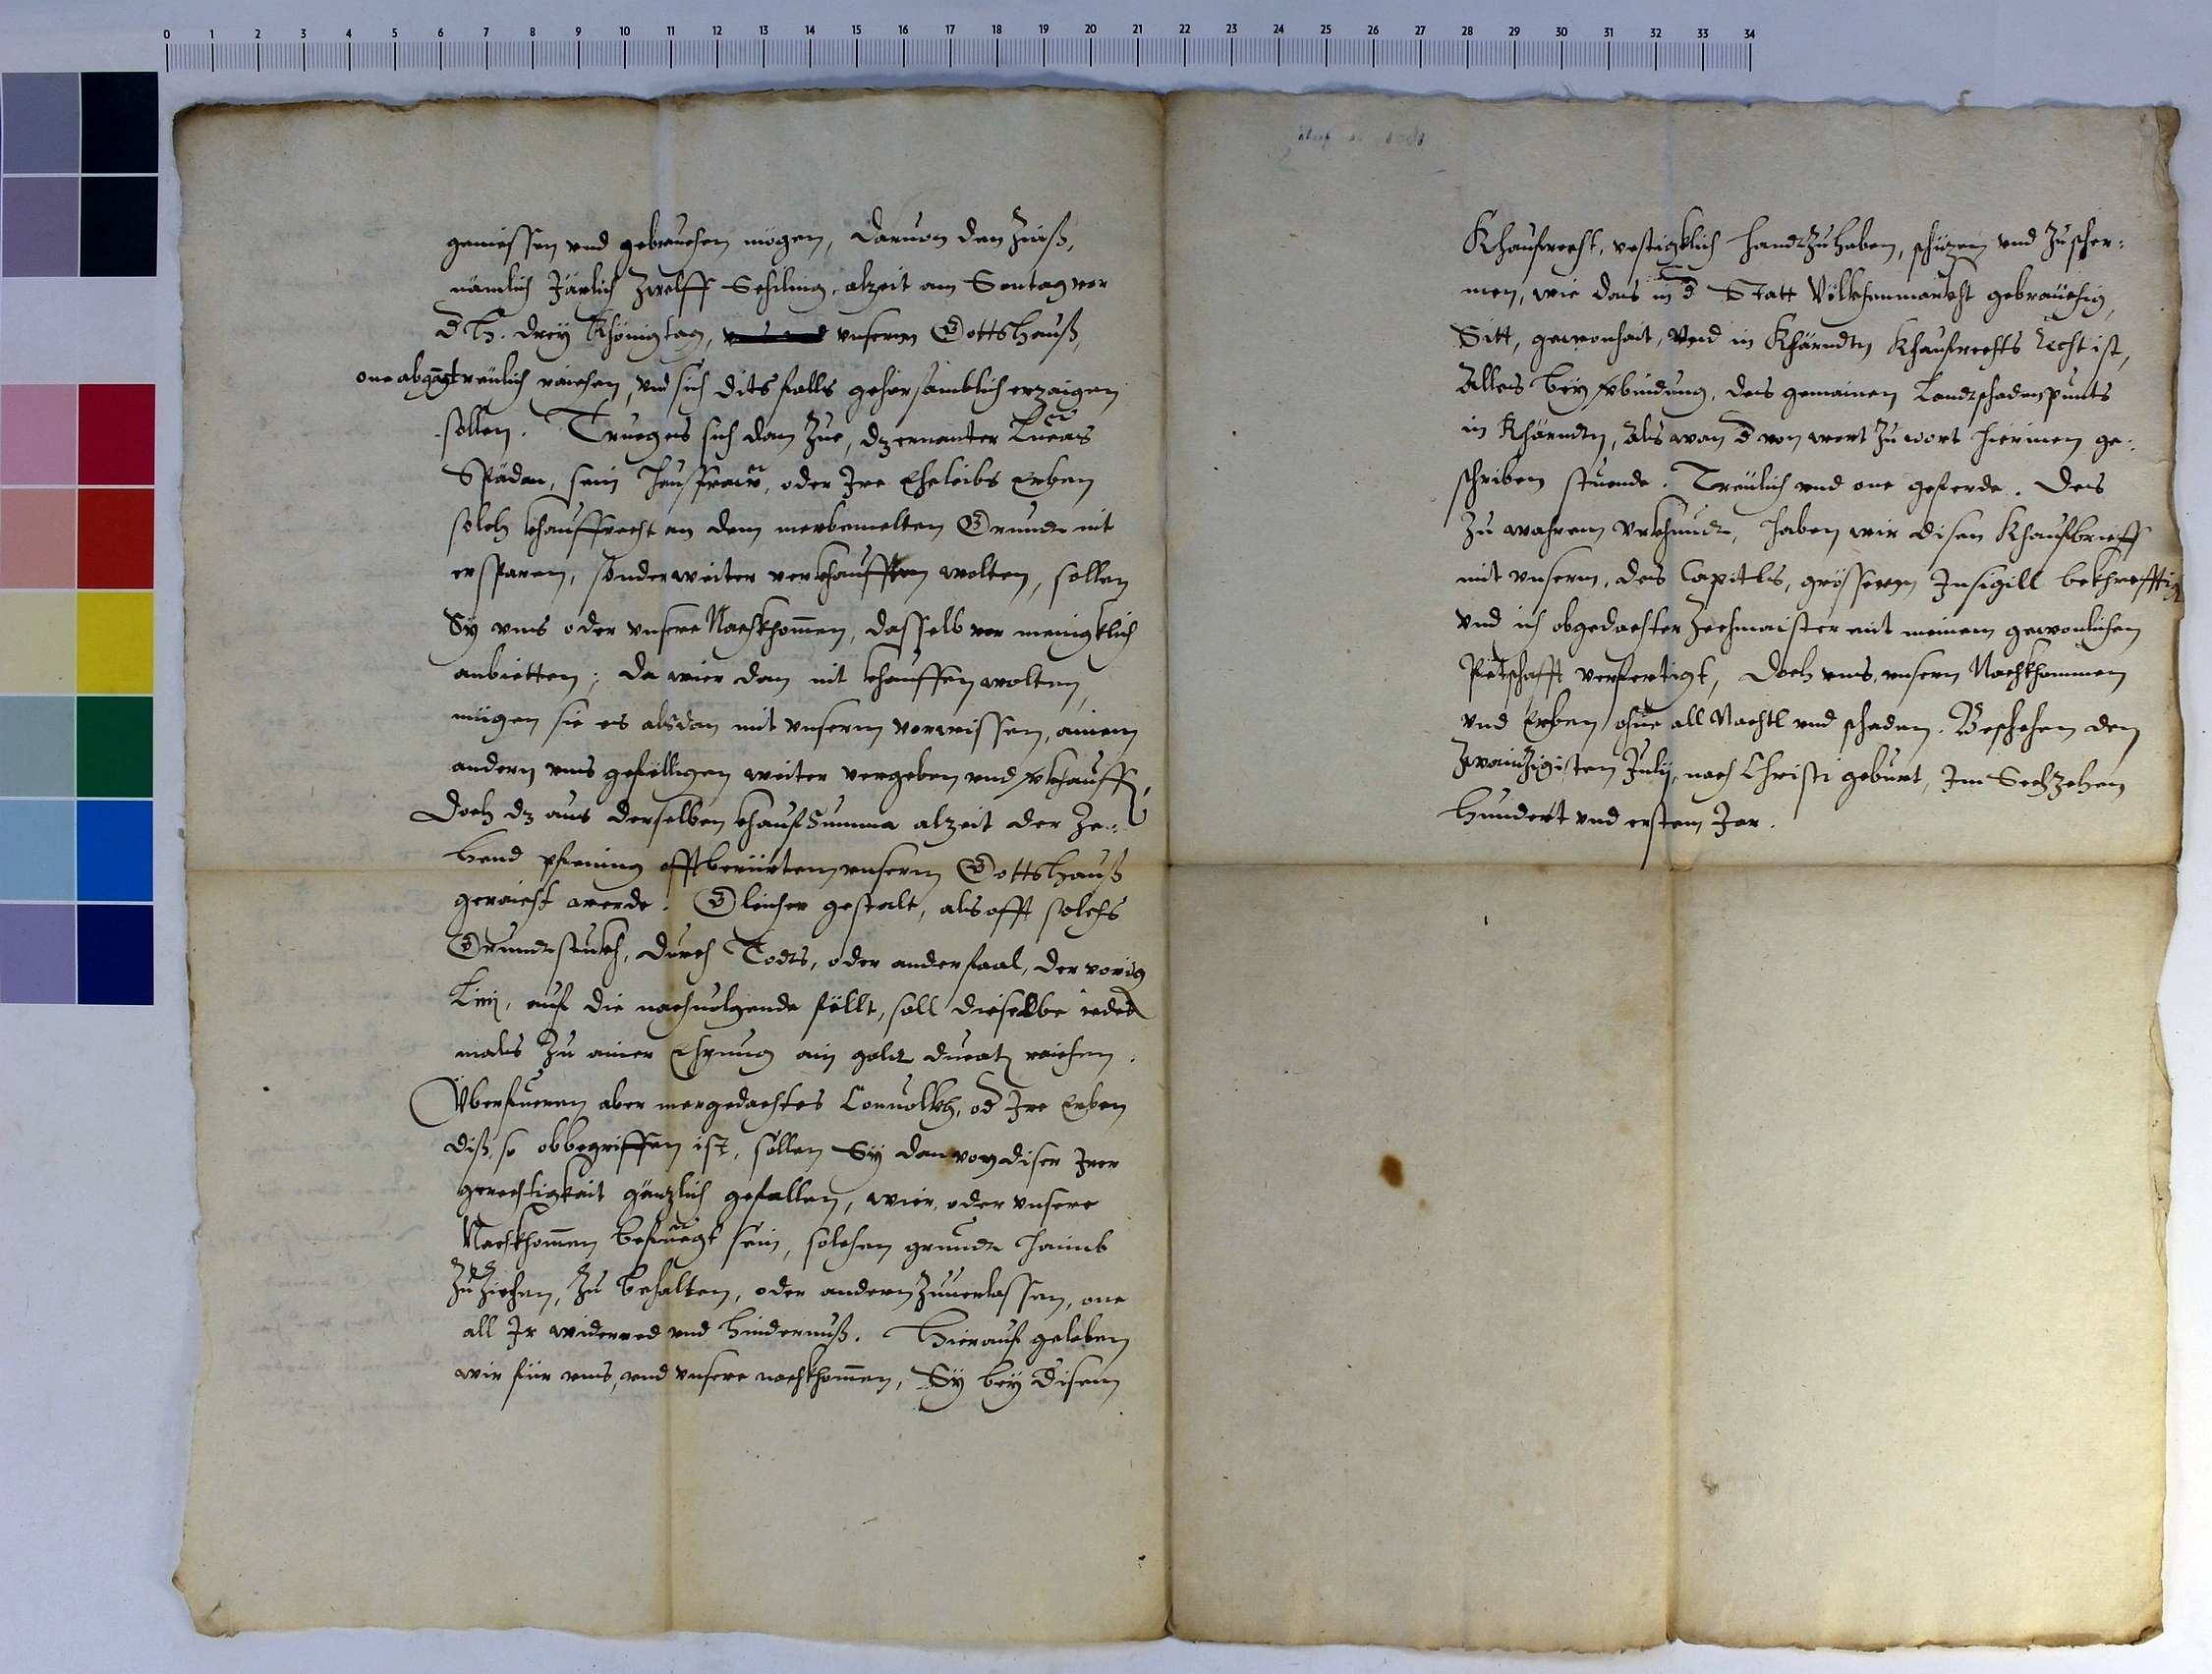 0 1 2 3 4 5 6 7 8 9 10 11 12 13 14 15 16 17 18 19 20 21 22 23 24 25 26 27 28 29 30 31 32 33 34
geniessen vnd gebrauchen mögen, daruon den Zinß,
nämlich Järlich Zwelff Schiling, alzeit am Sontag vor
d H. drey Khönigtag, vnserm Gottshauß,
one abgang treulich raichen, vnd sich ditsfalls gehorsamblich erzaigen
sollen. Truege es sich dan zue, dz ernanter Lucas
Spädan, sein Haußfraw, oder Ire Eheleibs Erben
solch khauffrecht an dem merbemelten Grundt nit
ersparen, sonder weiter verkhauffen wolten, sollen
Sy vns oder vnsere Nachkhomen, dasselb vor menigklich
anbietten; da wier dan nit khauffen wolten,
mügen sie es alsdan mit vnserm vorwissen, ainem
andern vns gefelligen weiter vergeben vnd verkhauff,
Doch dz aus derselben khaufSumma alzeit der Ze-:
hend pfening offtberürtem vnserm Gottshauß
geraicht werde. Gleicher gestalt, als offt solchs
Grundtstukh, durch Todts, oder ander faal, der vorig
Lini, auf die nachuolgende föllt, soll dieselbe iedes
mals zu ainer Ehrung ain goldt ducatn raichen.
Vberfueren aber mergedachtes Conuolkh, od Ire Erben
diß, so obbegriffen ist, sollen Sy dan von diser Irer
gerechtigkait gänzlich gefallen, wier, oder vnsere
Nachkhomen befuegt sein, solchen grundt haimb
zu ziehen, zu behalten, oder andern zuuerlassen, one
all Ir widerred vnd hindernuß. Hierauf geloben
wir für vns, vnd vnsere nachkhomen, Sy bey disem
Khaufrecht, vestigklich handtzuhaben, schüzen vnd zuscher:
men, wie dans in d Statt Völkhenmarkht gebreuchig,
Sitt, gewonhait, vnd in Khärndtn Khaufrechts Recht ist,
Alles bey verbindung, des gemainen Landtschadenpunts
in Khärndtn, als wan d von wort zu wort hierinen ge:
schriben stuende. Treulich vnd one geferde. Des
zu wahrem Vrkhundt, haben wir disen Khaufbrieff
mit vnserm, des Capitls, grössern Insigill bekhrefftigt
vnd ich obgedachter Zechmaister mit meinem gewonlichen
Petschafft verfertigt, doch vns, vnsern Nachkhommen
vnd Erben ohne all Nachtl vnd schaden. Beschehen den
Zwainzigisten Julij, nach Christi geburt, Im Sechzehen
Hundert vnd ersten Jar.